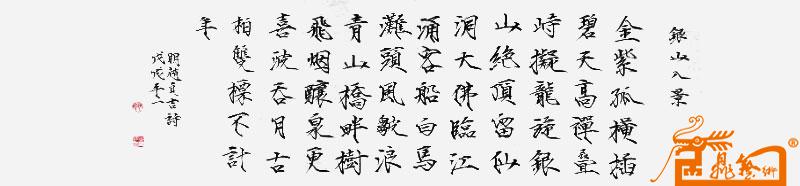 銀山八景
金紫孤橫插
碧天高禪疊
峙擬龍旋銀
山絕頂留仙
洞大佛臨江
涌客船白馬
灘頭風歕浪
青山橋畔樹
飛烟釀泉更
喜沇吞月古
柏雙標不計
年
明禎貞吉詩
戊戌年